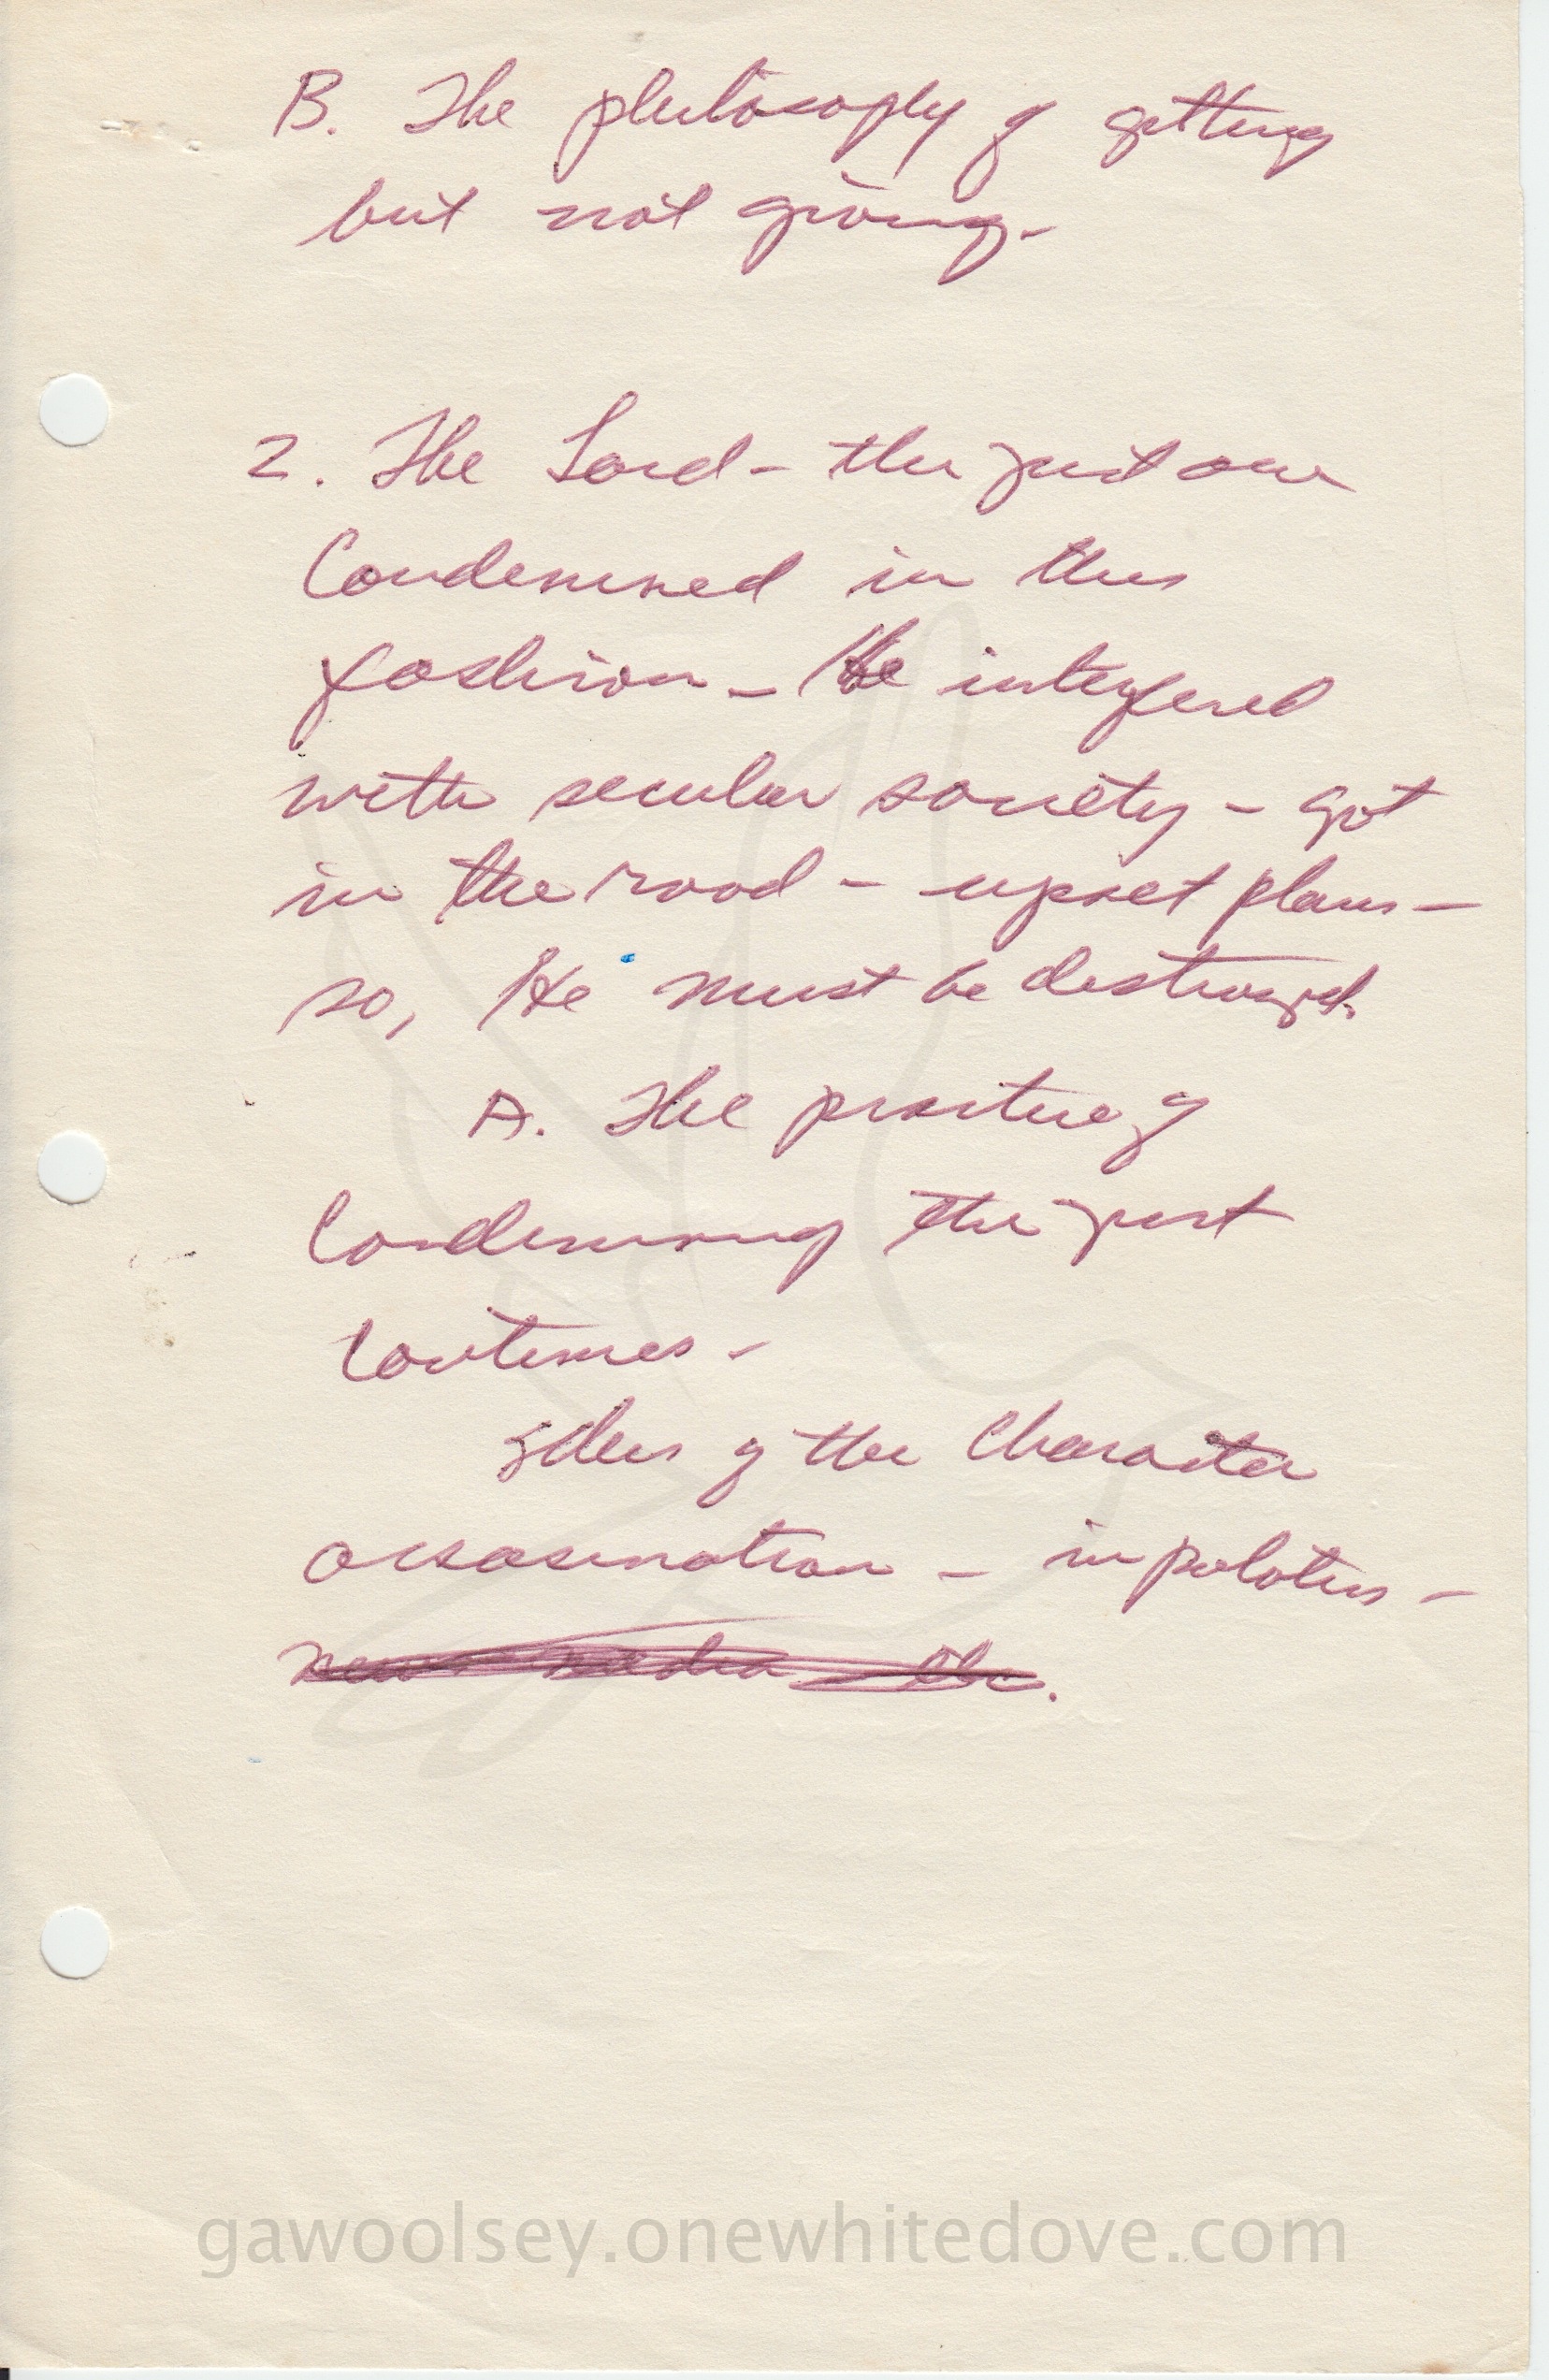 B. The philosophy of getting
but not giving.
2. The Lord - the just one
Condemned in this
fashion - He interfered
with secular society - got
in the road - upset plans -
so, He must be destroyed.
A. The practice of
Condemning the just
Continues -
of the Character
assasination - in politics -
news media etc.
gawoolsey.onewhitedove.com